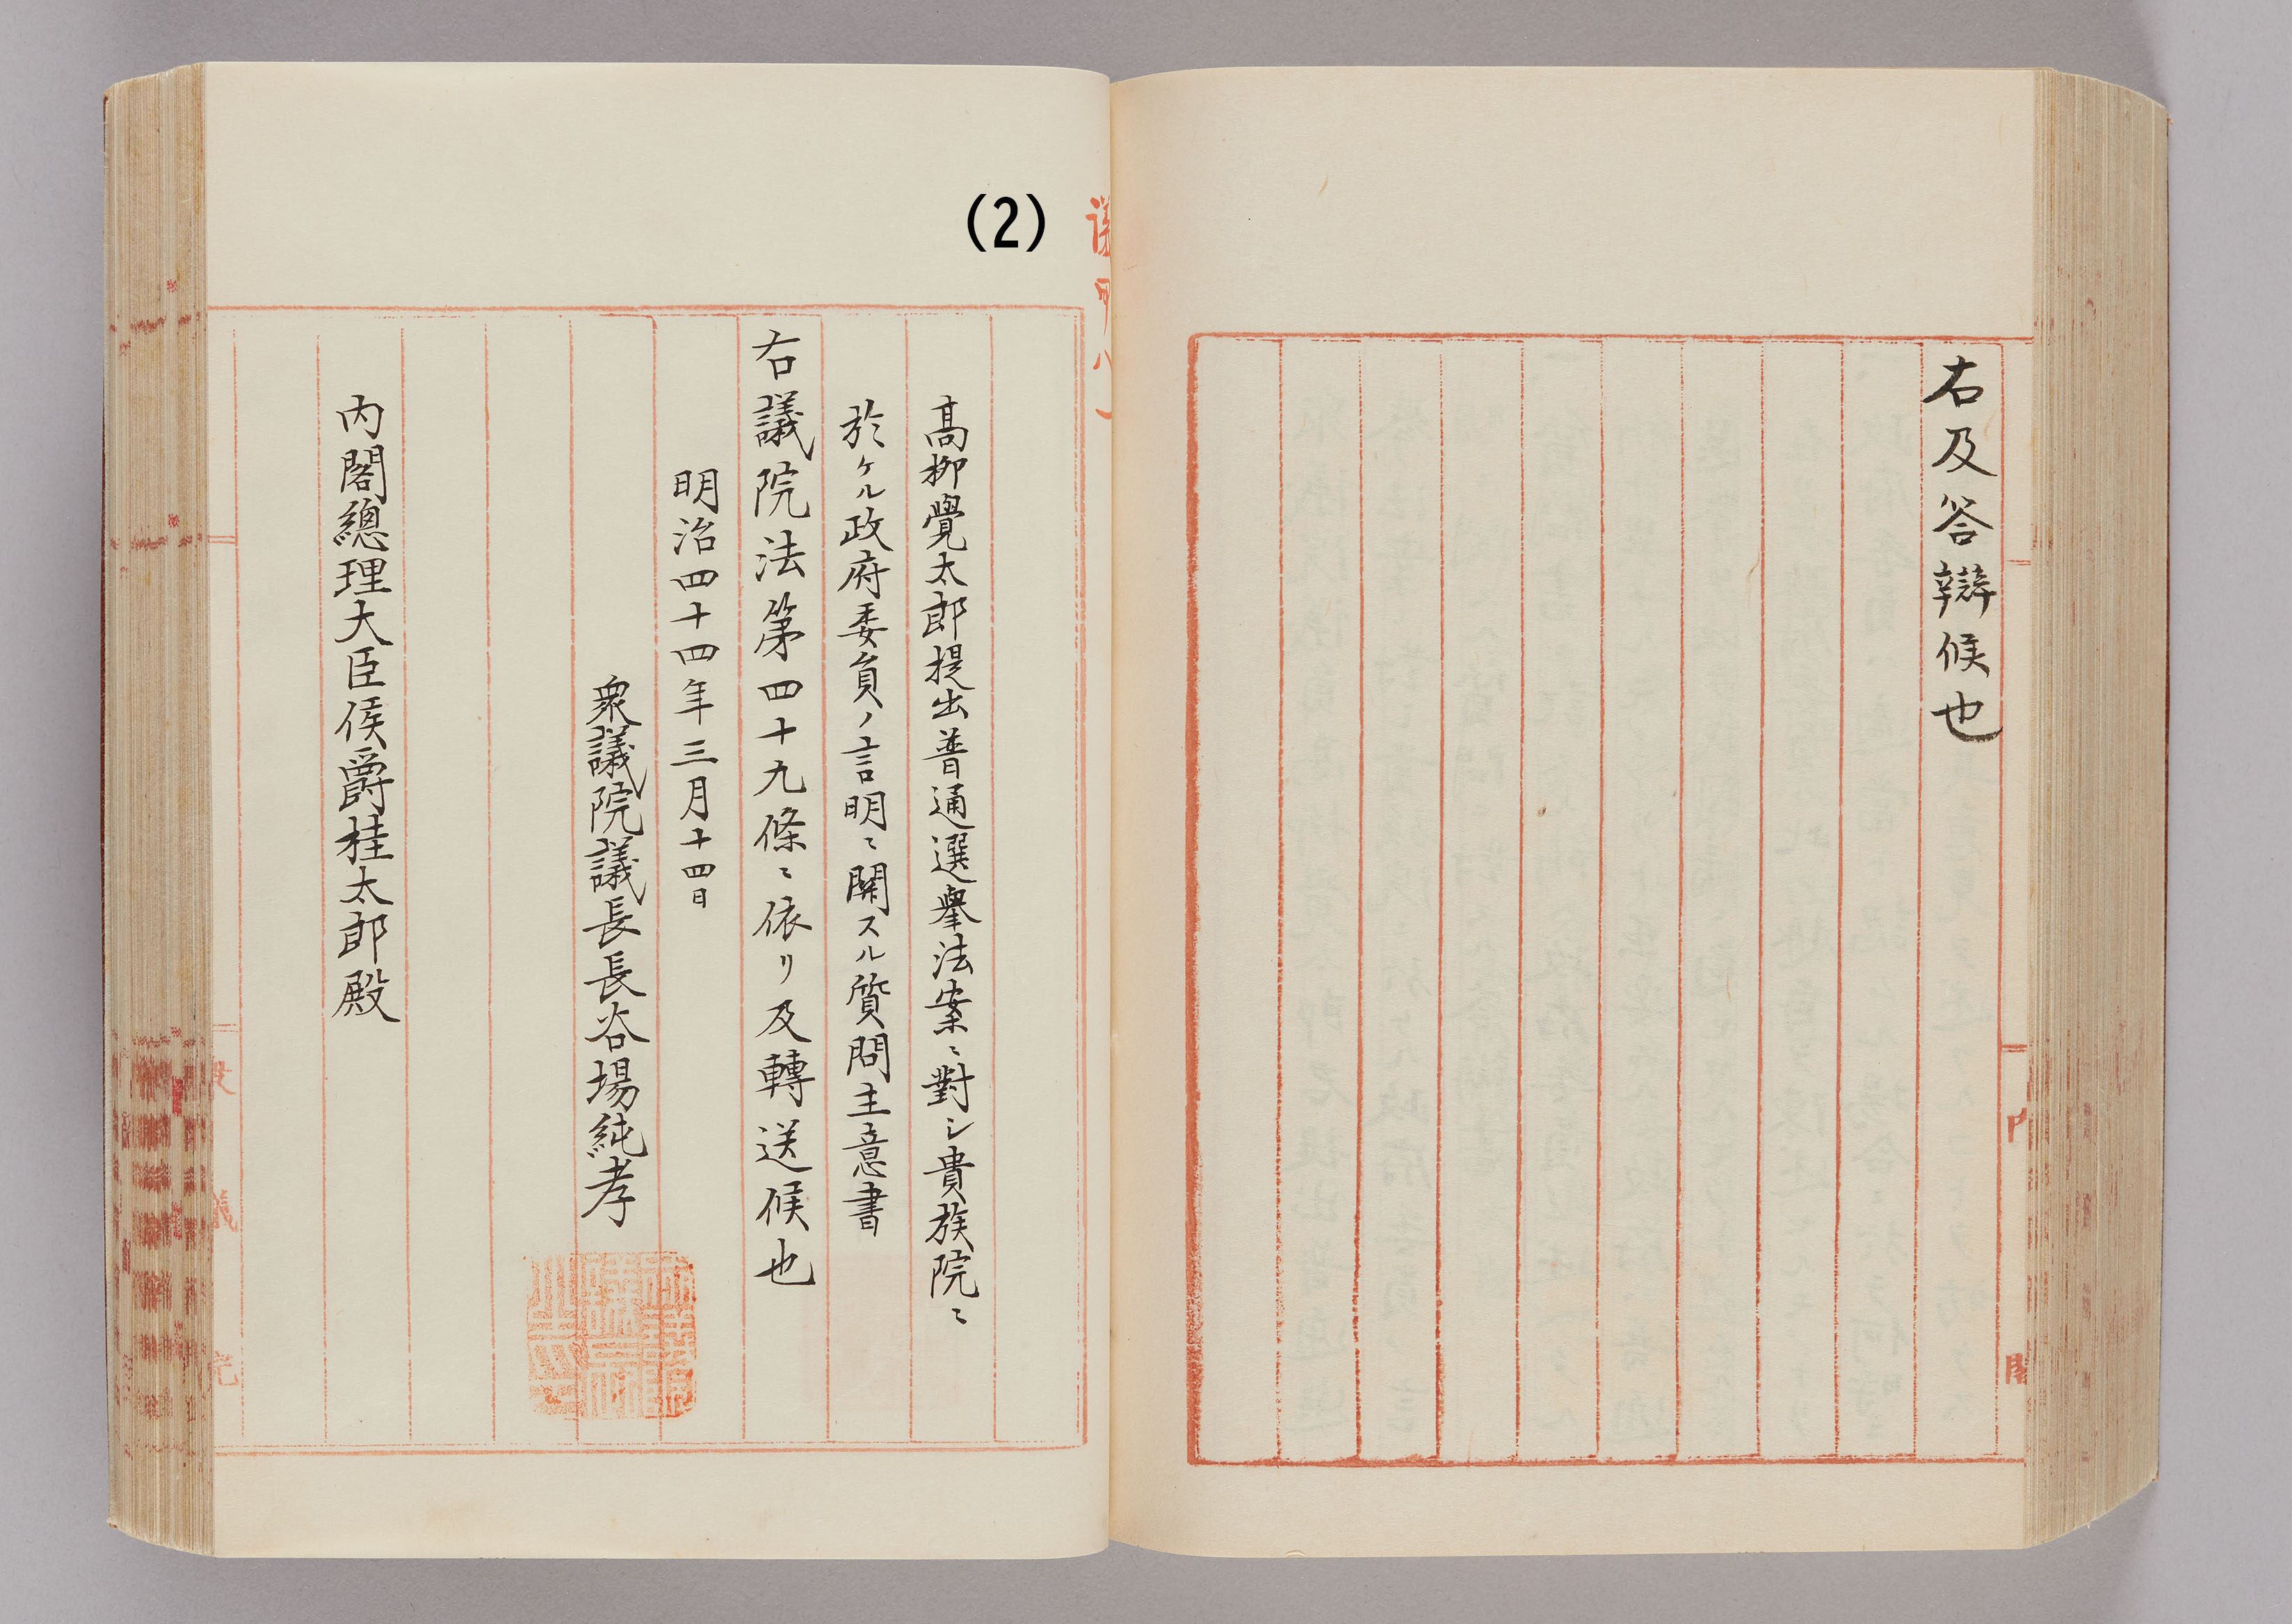 右及答辯候也
(2)
高柳覺太郎提出普通選擧法案ニ對シ貴族院ニ
於ケル政府委員ノ言明ニ關スル質問主意書
右議院法第四十九條ニ依リ及轉送候也
明治四十四年三月十四日
衆議院議長長谷場純孝
內閣總理大臣侯爵桂太郎殿